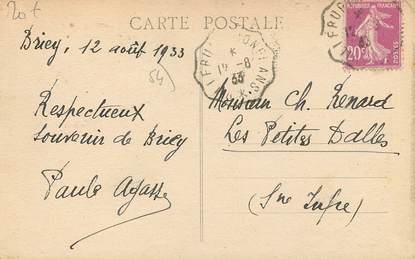 20f
CARTE POSTALE
Briey, 12 août 1933
(54)
Respectueux
Souvenir de Briey
Paule Agasse
12 -8
33
REPUBLIQUE FRANÇAISE
20c
POSTES
Monsieur Ch. Renard
Les Petites Dalles
(Sne Infre)